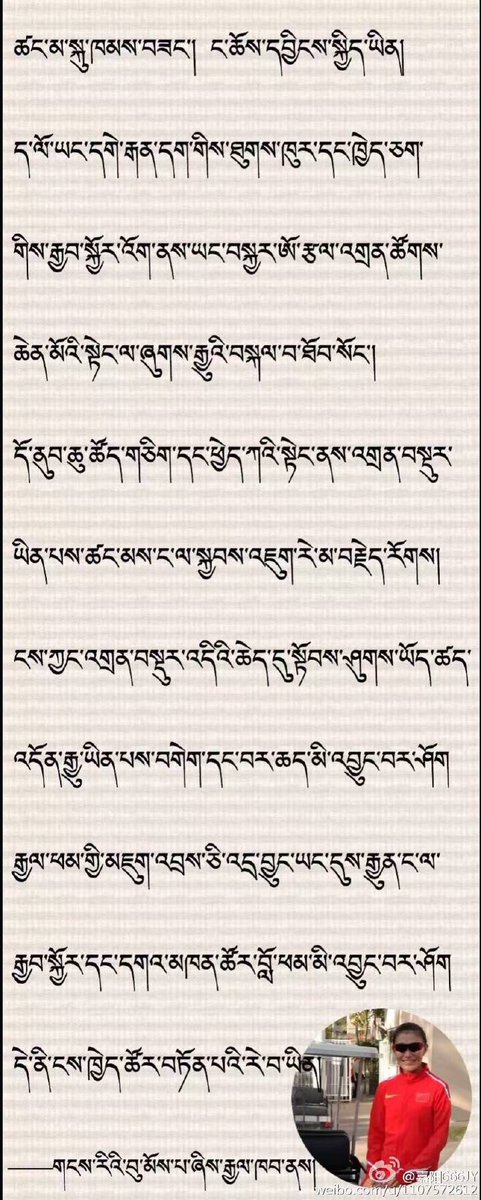 ཚང་མ་སྐུ་ཁམས་བཟང་། ང་ཆོས་དབྱིངས་སྐྱིད་ཡིན།
ད་ལོ་ཡང་དགེ་རྒན་དག་གིས་ཐུགས་ཁུར་དང་ཁྱེད་ཅག་
གིས་རྒྱབ་སྐྱོར་འོག་ནས་ཡང་བསྐྱར་ཨོ་རྩལ་འགྲན་ཚོགས་
ཆེན་མོའི་སྟེང་ལ་ཞུགས་རྒྱུའི་བསྐལ་བ་ཐོབ་སོང་།
དོ་ནུབ་ཆུ་ཚོད་གཅིག་དང་ཕྱེད་ཀའི་སྟེང་ནས་འགྲན་བསྡུར་
ཡིན་པས་ཚང་མས་ང་ལ་སྐྱབས་འཇུག་རེ་མ་བརྗེད་རོགས།
ངས་ཀྱང་འགྲན་བསྡུར་འདིའི་ཆེད་དུ་སྟོབས་ཤུགས་ཡོད་ཚད་
འདོན་རྒྱུ་ཡིན་པས་བགེག་དང་བར་ཆད་མི་འབྱུང་བར་ཤོག
རྒྱལ་ཕམ་གྱི་མཇུག་འབྲས་ཅི་འདྲ་བྱུང་ཡང་དུས་རྒྱུན་ང་ལ་
རྒྱབ་སྐྱོར་དང་དགའ་མཁན་ཚོར་བློ་ཕམ་མི་འབྱུང་བར་ཤོག
དེ་ནི་ངས་ཁྱེད་ཚོར་བཏོན་པའི་རེ་བ་ཡིན།
——གངས་རིའི་བུ་མོས་པ་ཞིས་རྒྱལ་ཁབ་ནས།
weibo.com/u/1107572612